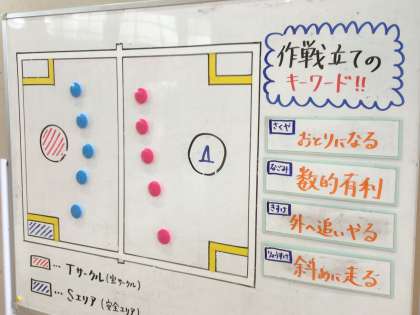 作戦立ての
キーワード!!
さくや
おとりになる
なごみ
数的有利
きすけ
外へ追いやる
りょうすけ
斜めに走る
…Tサークル(宝サークル)
…Sエリア(安全エリア)